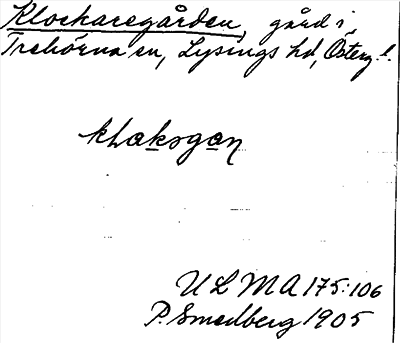 Klockaregården, gård i
Trehörna sn, Lysings hd, Österg.l.
kłoksgan
ULMA 175:106
P. Smedberg 1905